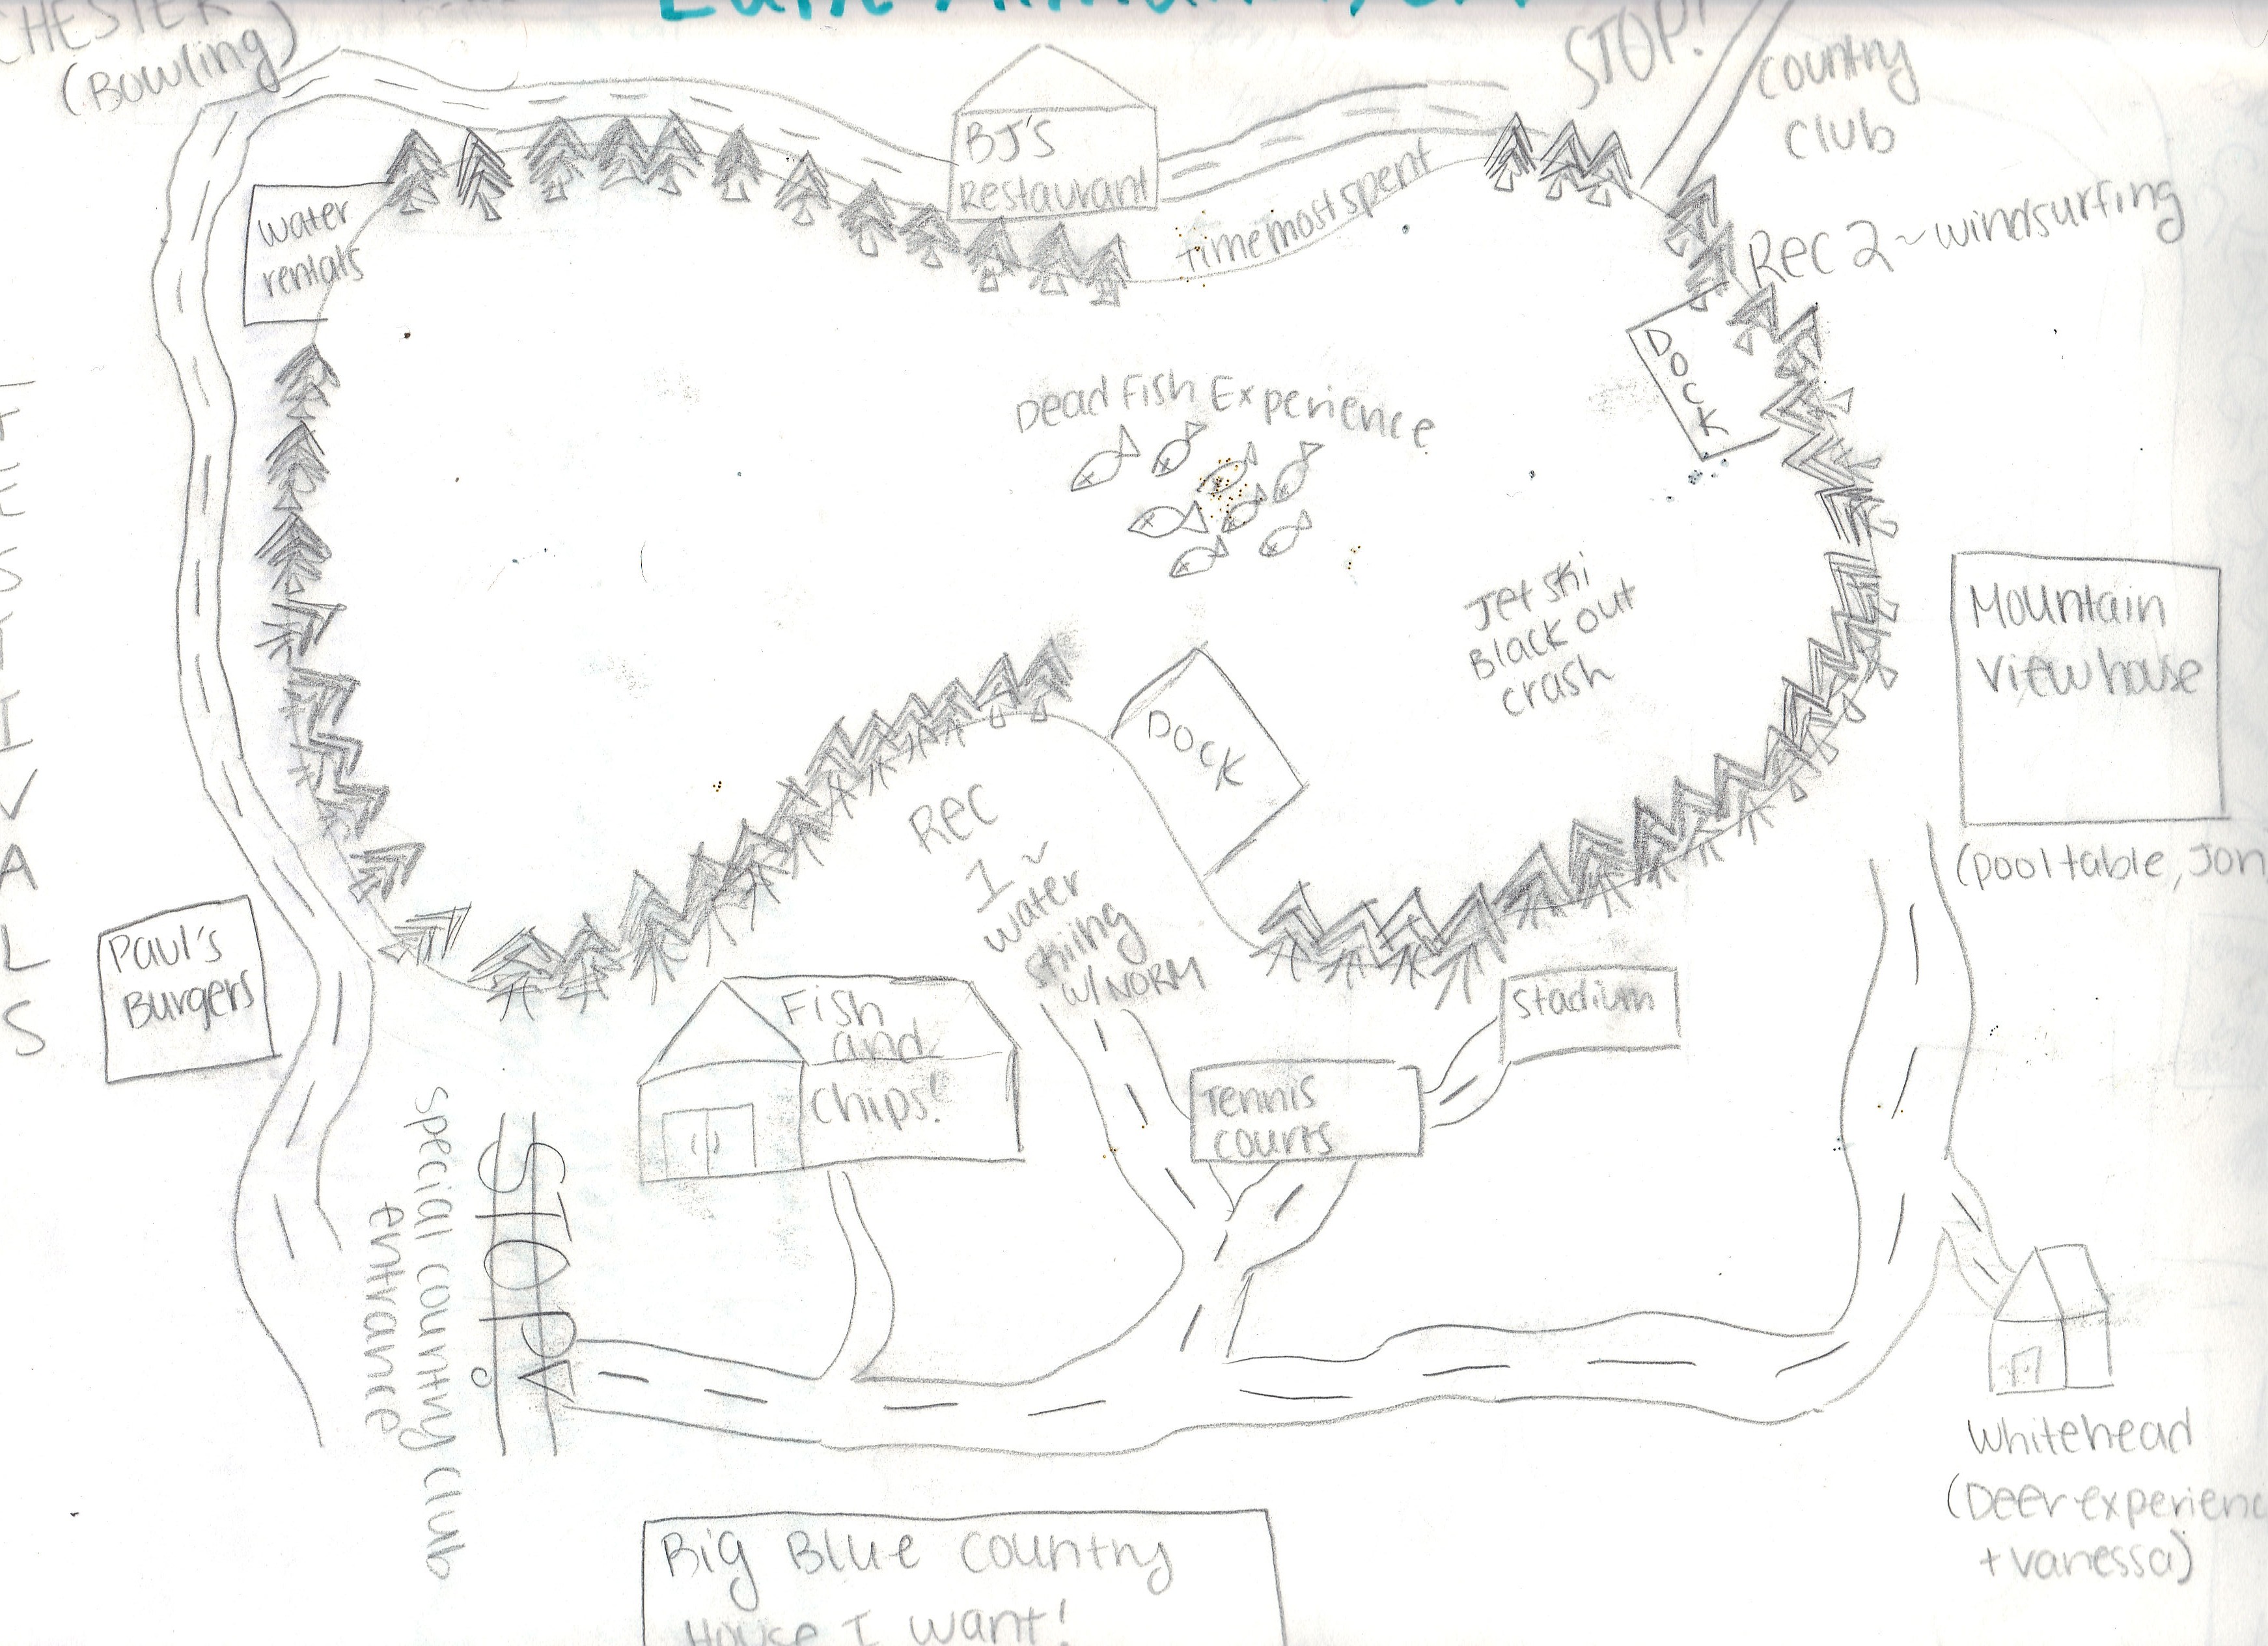 (Bowling)
STOP!
Country
Club
BJ's
Restaurant
time most spent
Rec 2~windsurfing
water
rentals
DOCK
Dead Fish Experience
Jet Ski
Black out
crash
Mountain
View house
(pool table, Jon
DOCK
Rec
1~
water
skiing
w/ NORM
Paul's
Burgers
Fish
and
Chips!
Stadium
Tennis
courts
special country club
entrance
STOP!
Whitehead
(Deer experienc
+vanessa)
Big Blue country
House I want!